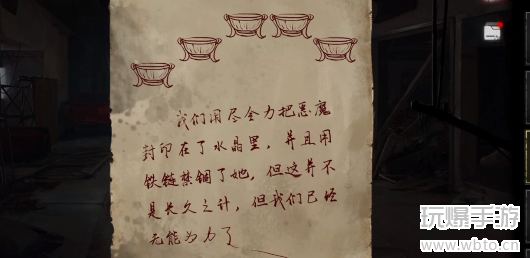 我们用尽全力把恶魔
封印在了水晶里，并且用
铁链禁锢了她，但这并不
是长久之计，但我们已经
无能为力了
玩爆手游
www.wbto.cn